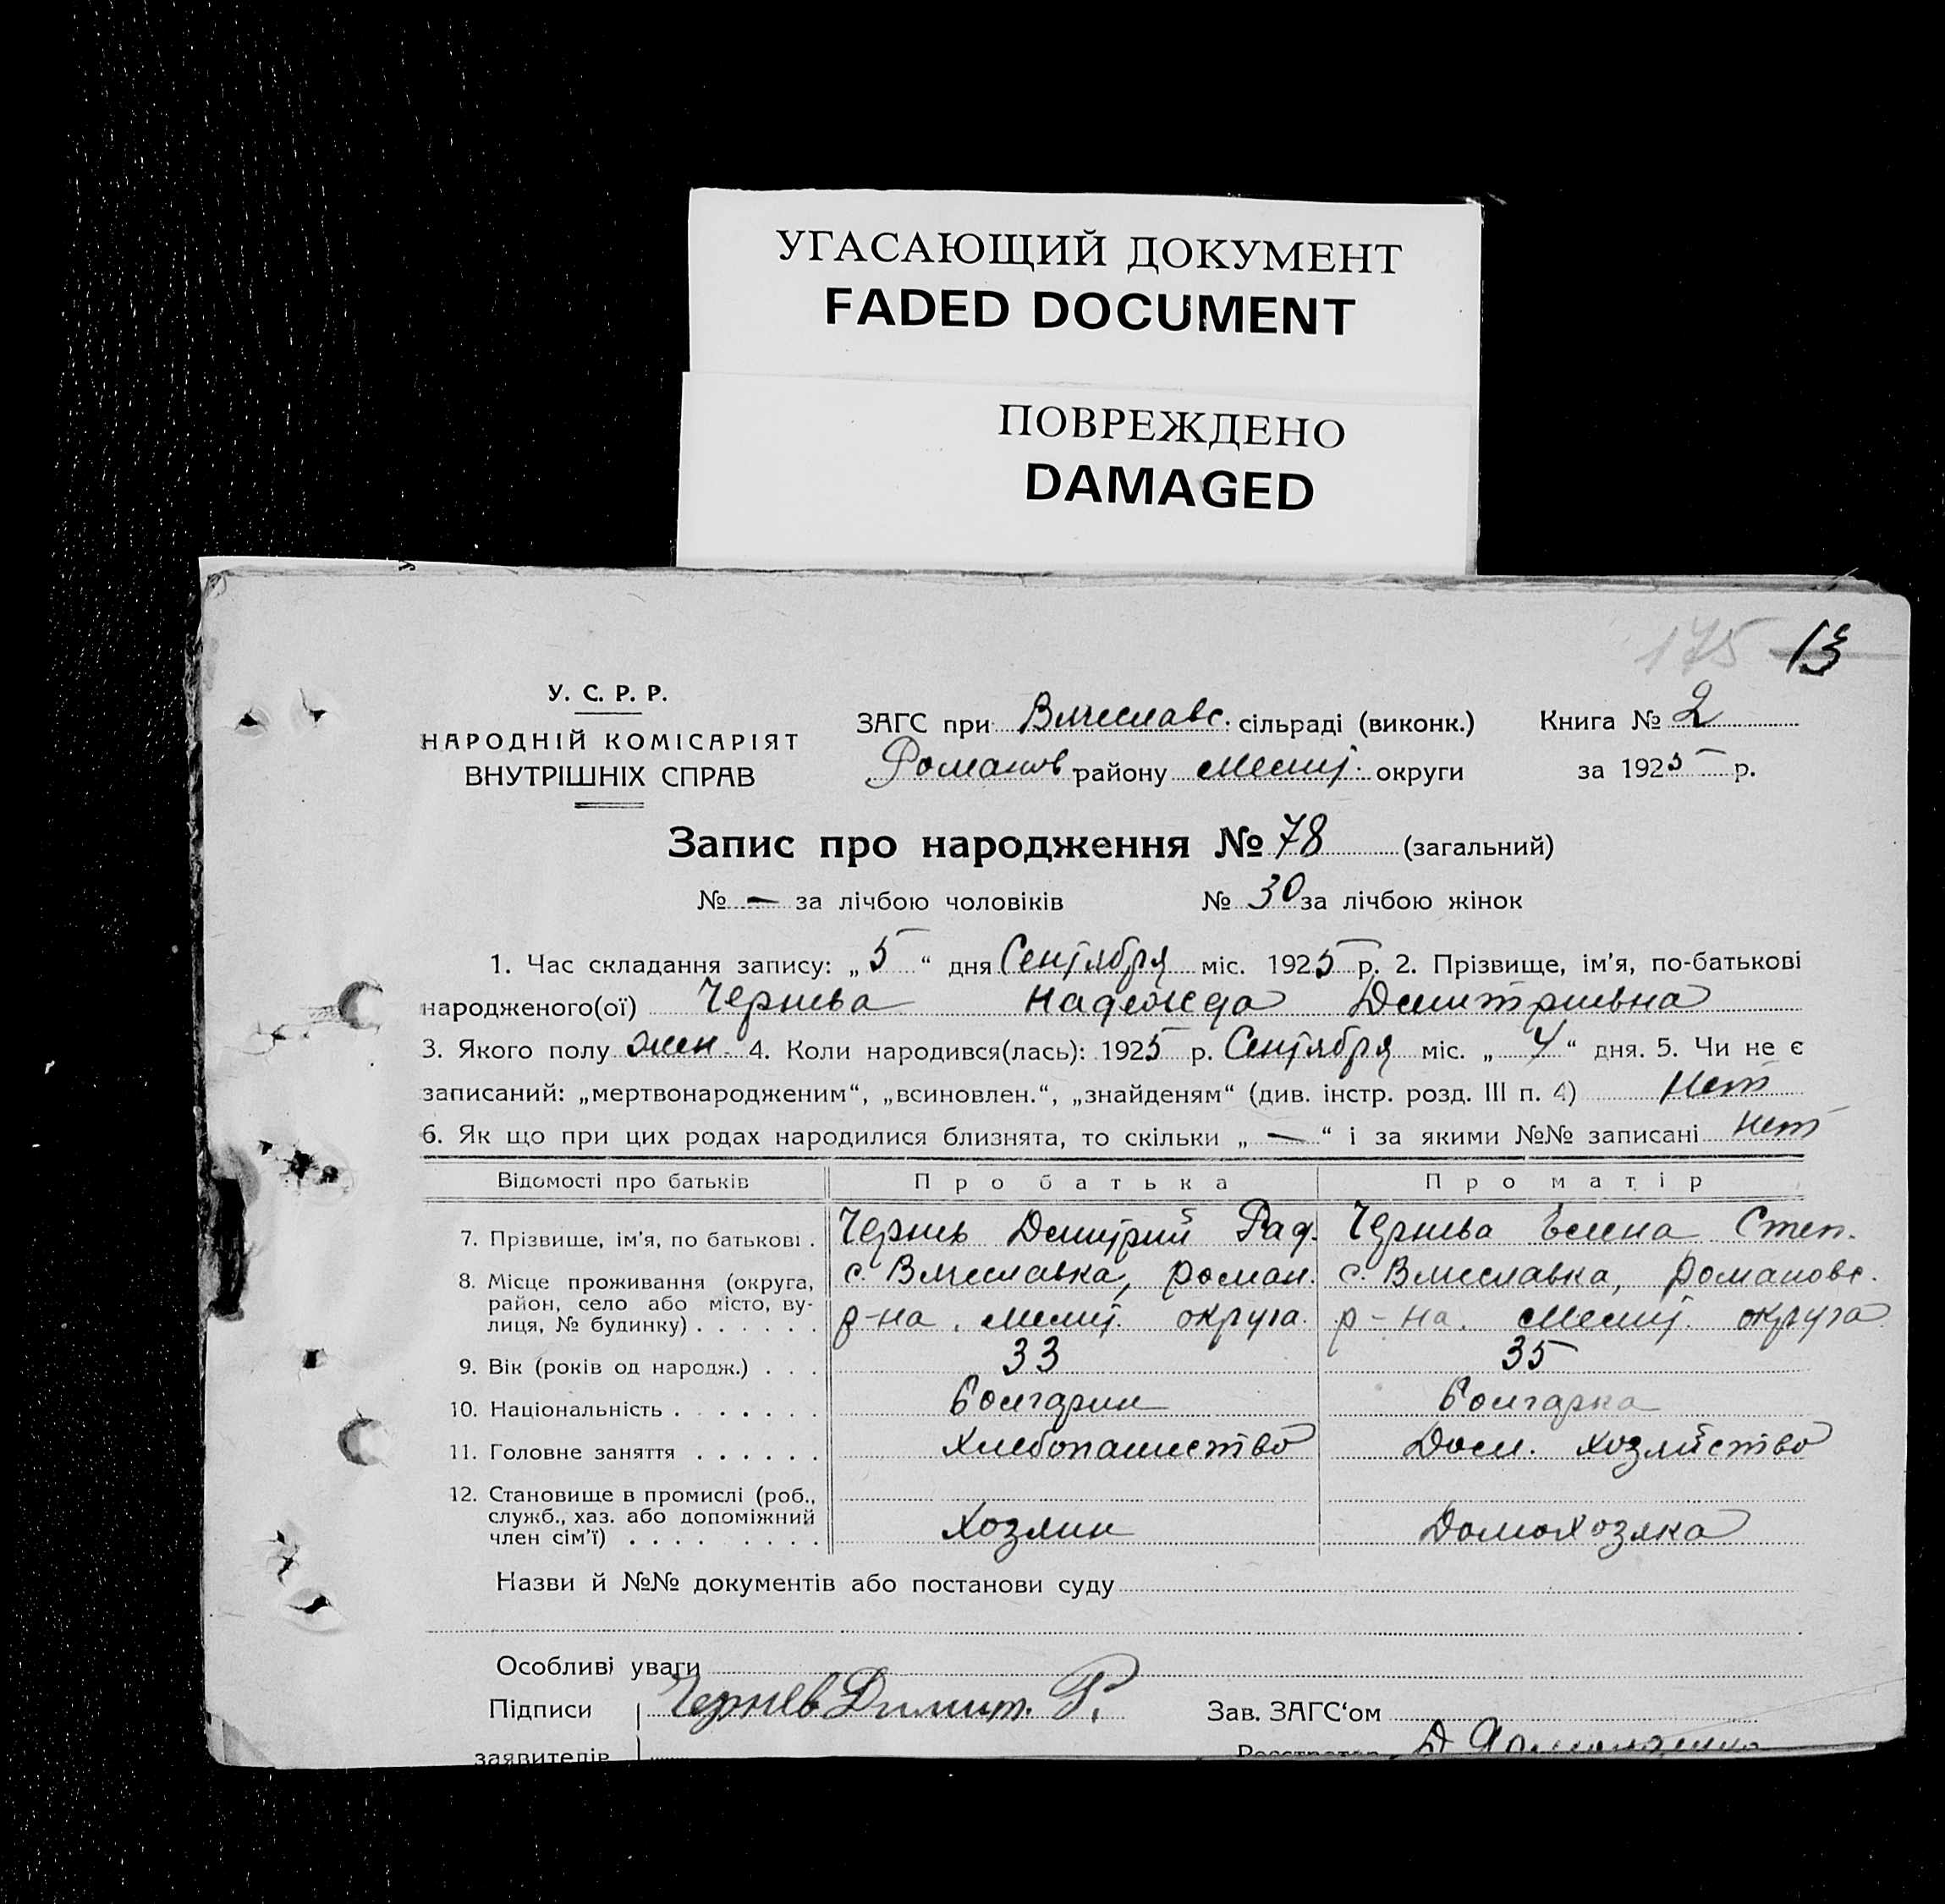 УГАСАЮЩИЙ ДОКУМЕНТ
FADED DOCUMENT
ПОВРЕЖДЕНО
DAMAGED
175 13
У. С. Р. Р.
НАРОДНІЙ КОМІСАРІЯТ
ВНУТРІШНІХ СПРАВ
ЗАГС при Вячеславс. сільраді (виконк.) Книга № 2
Романов району Мелит. округи за 1925 р.
Запис про народження № 78 (загальний)
№ — за лічбою чоловіків № 30 за лічбою жінок
1. Час складання запису: „5“ дня Сентября міс. 1925 р. 2. Прізвище, ім'я, по-батькові
народженого(ої) Чернева Надежда Димитриевна
3. Якого полу жен. 4. Коли народився(лась): 1925 р. Сентября міс. „4“ дня. 5. Чи не є
записаний: „мертвонародженим“, „всиновлен.“, „знайденям“ (див. інстр. розд. III п. 4) Нет
6. Як що при цих родах народилися близнята, то скільки „—“ і за якими №№ записані Нет
Відомості про батьків Про батька Про матір
7. Прізвище, ім'я, по батькові . Чернев Димитрий Рад. Чернева Елена Степ.
8. Місце проживання (округа, район, село або місто, вулиця, № будинку) . . . . . . с. Вячеславка, Роман. р-на. Мелит. округа. с. Вячеславка, Романовс. р-на. Мелит. округа
9. Вік (років од народж.) . . . 33 35
10. Національність . . . . . . . Болгарин Болгарка
11. Головне заняття . . . . . . Хлебопашество Дом. хозяйство
12. Становище в промислі (роб., служб., хаз. або допоміжний член сім'ї) . . . . . . . . Хозяин Домохозяка
Назви й №№ документів або постанови суду
Особливі уваги
Підписи Чернев Димит. Р. Зав. ЗАГС'ом
заявителів Реєстратор Д